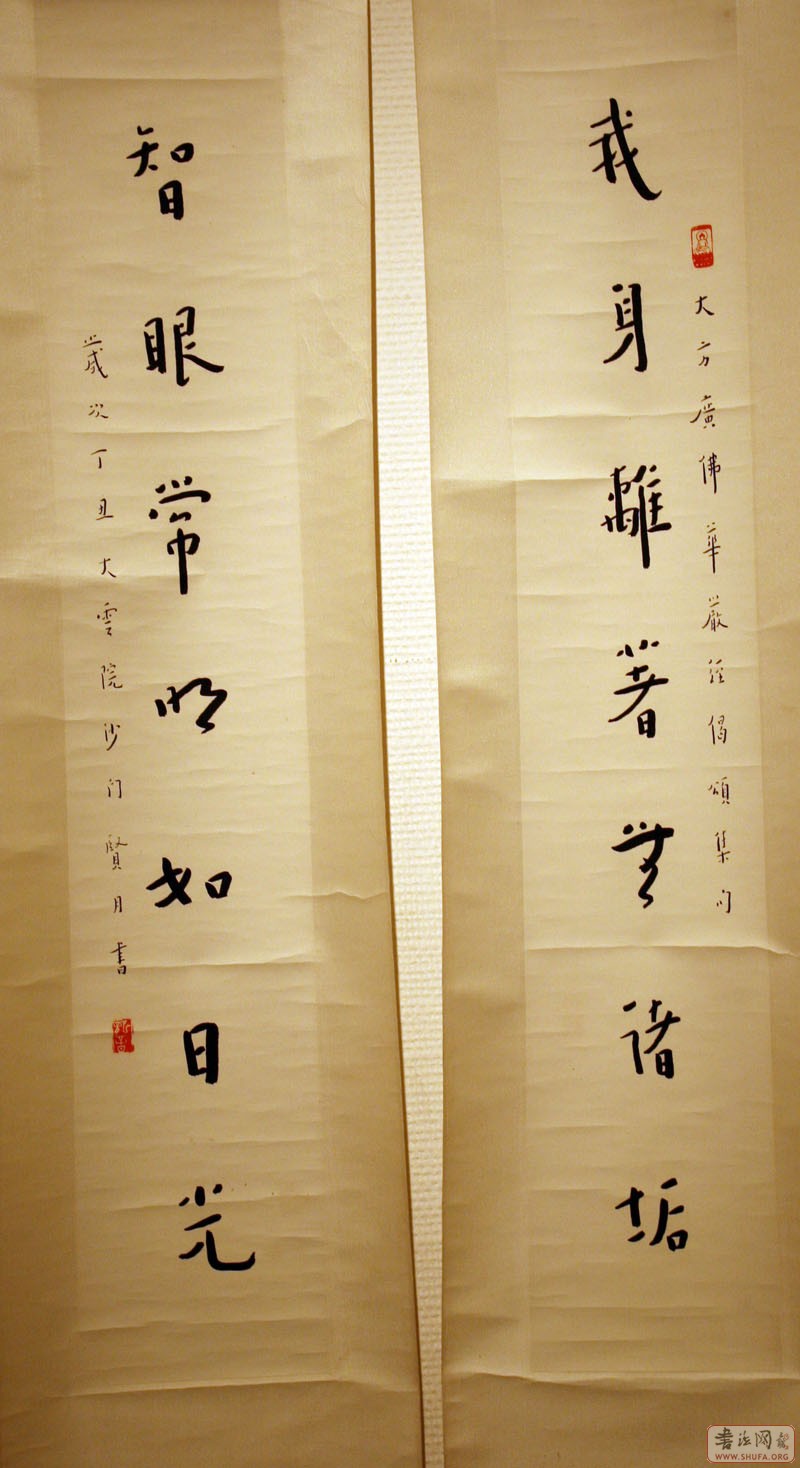 我身離著無諸垢
大方廣佛華嚴經偈頌集句
智眼常明如日光
歲次丁丑大雲院沙门賢月書
書法网
WWW.SHUFA.ORG